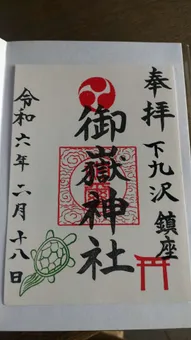 奉拝
下九沢 鎮座
御嶽神社
令和六年二月十八日